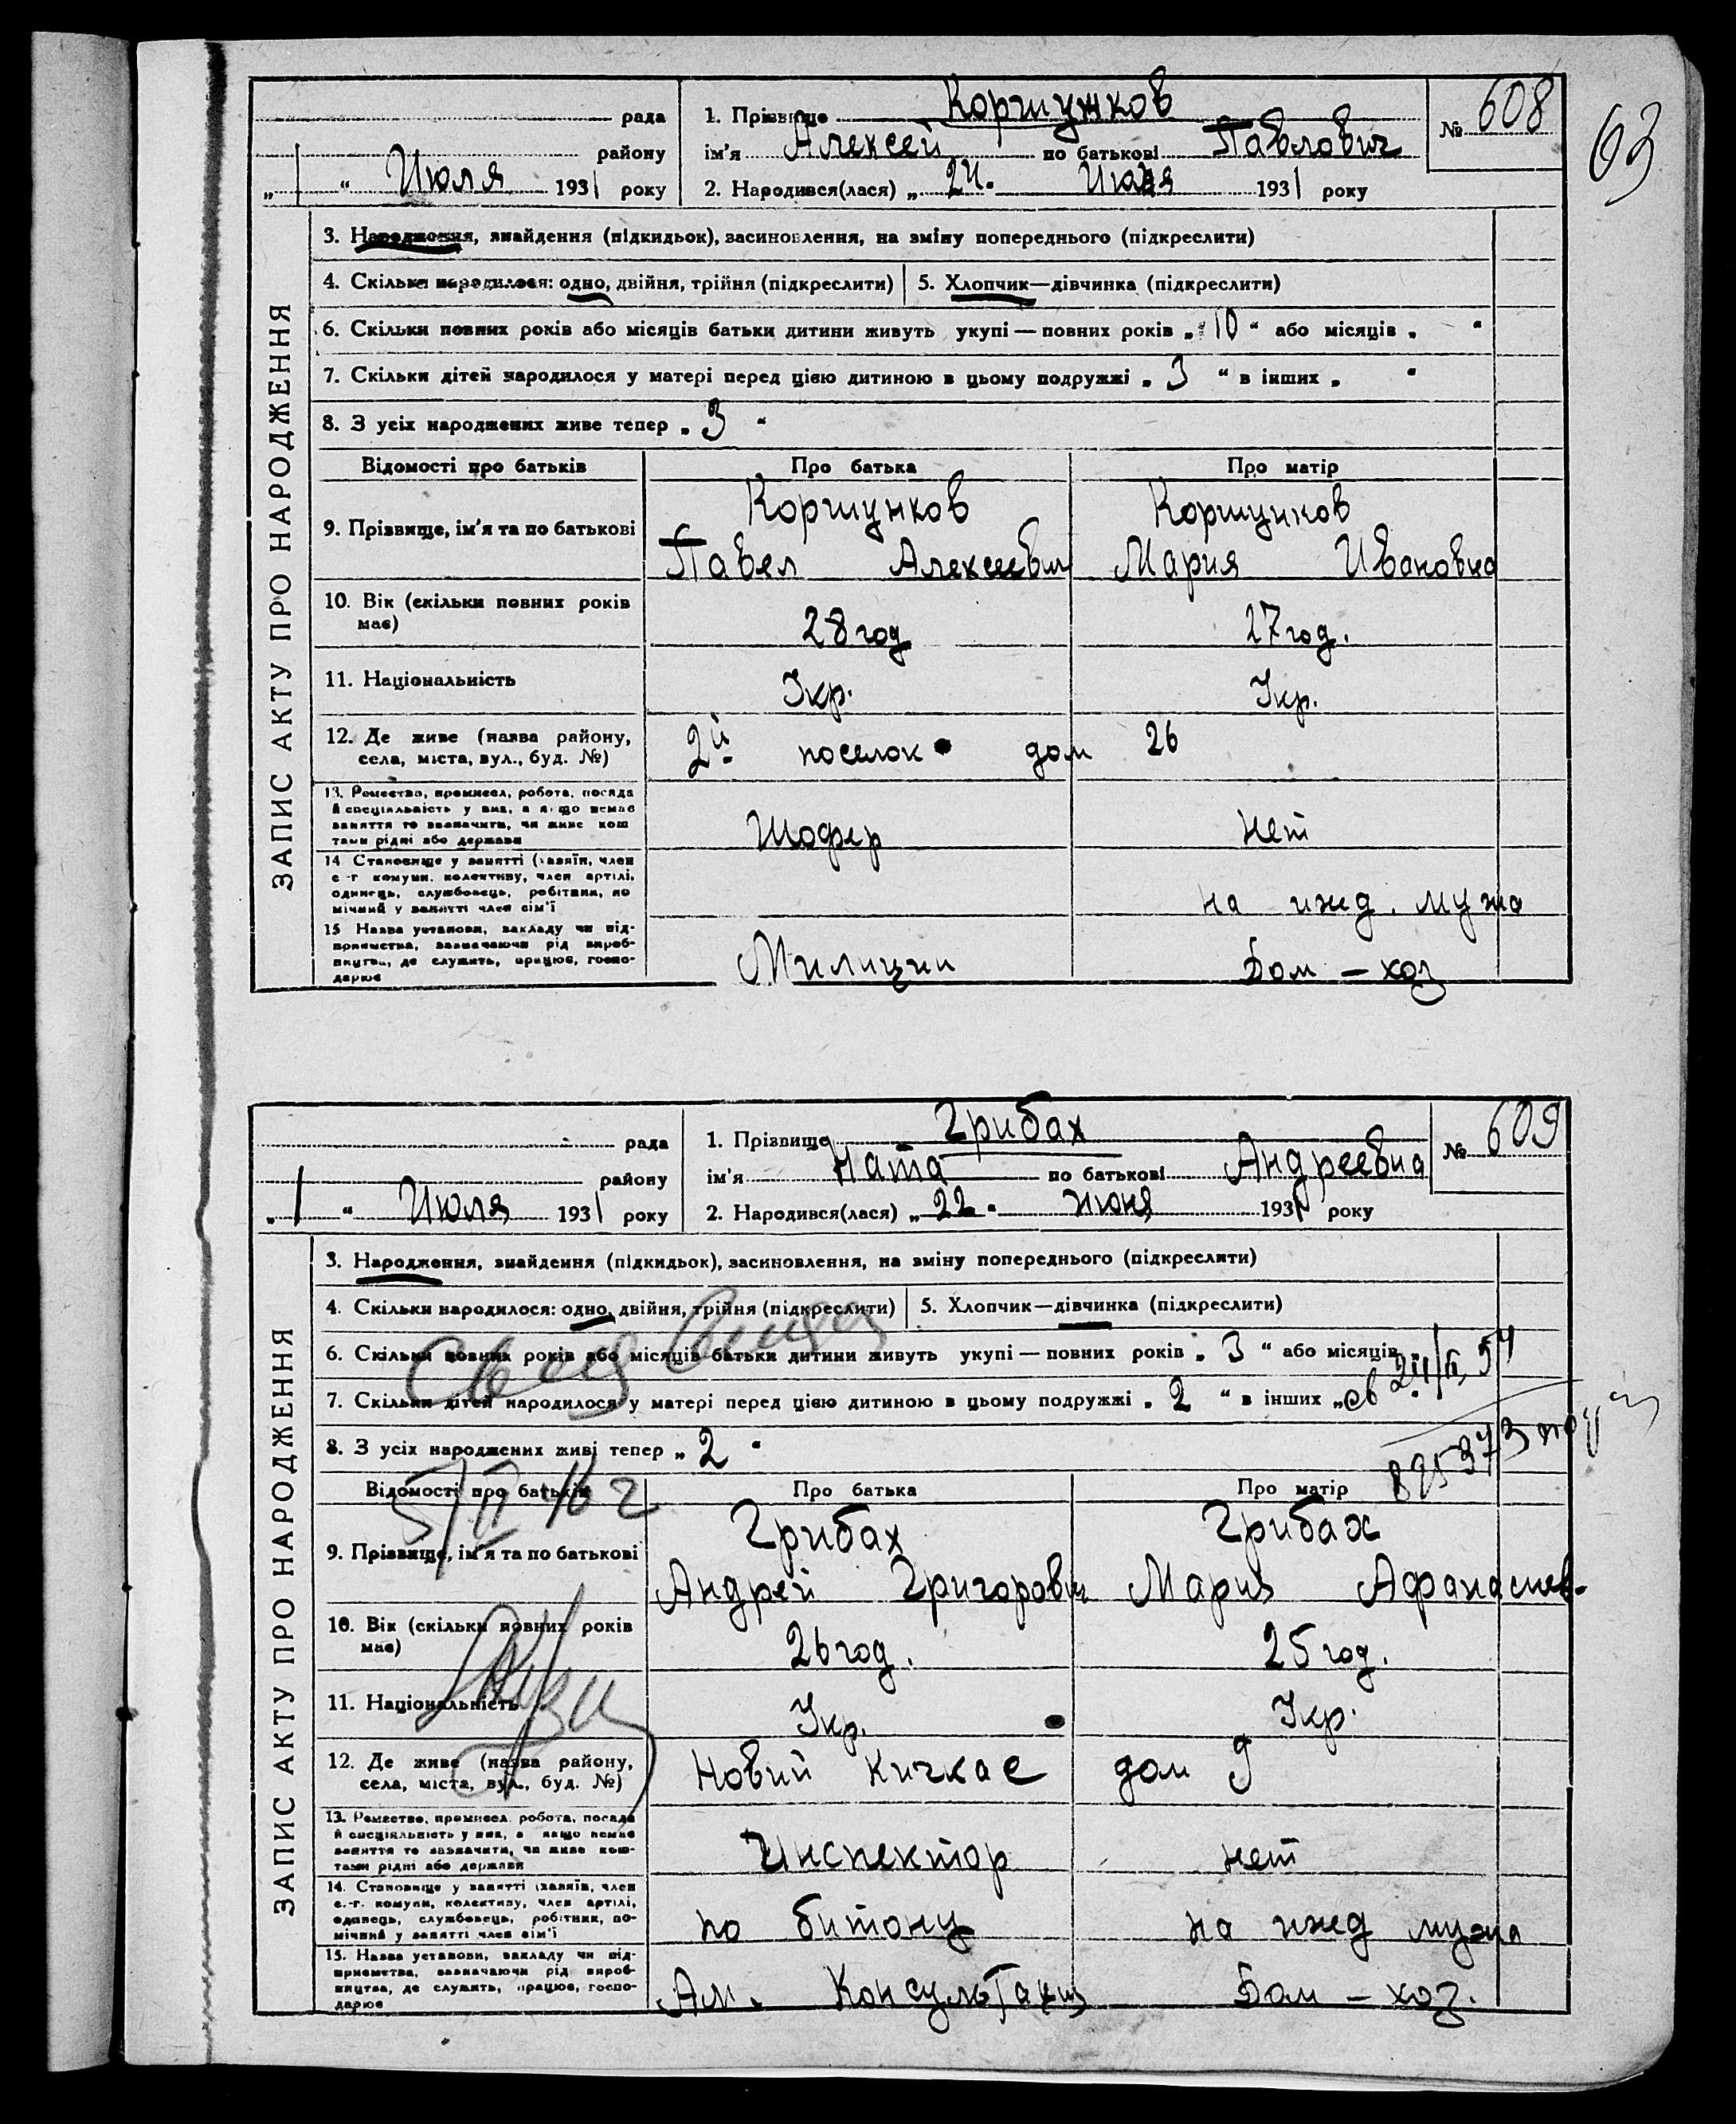 63
рада
района
„ 1 “ Июля 1931 року
1. Прізвище Коршунков
ім'я Алексей по батькові Павлович
2. Народився(лася) „ 24. Июня 1931 року
№ 608
ЗАПИС АКТУ ПРО НАРОДЖЕННЯ
3. Народження, знайдення (підкидьок), засиновлення, на зміну попереднього (підкреслити)
4. Скільки народилося: одно, двійня, трійня (підкреслити) 5. Хлопчик—дівчинка (підкреслити)
6. Скільки повних років або місяців батьки дитини живуть укупі — повних років „ 10 “ або місяців „ “
7. Скільки дітей народилося у матері перед цією дитиною в цьому подружжі „ 3 “ в інших „ “
8. З усіх народжених живе тепер „ 3 “
Відомості про батьків Про батька Про матір
9. Прізвище, ім'я та по батькові Коршунков Коршунков
Павел Алексеевич Мария Ивановна
10. Вік (скільки повних років має) 28 год 27 год.
11. Національність Укр. Укр.
12. Де живе (назва району, села, міста, вул., буд. №) 2й поселок дом 26
13. Ремество, промисел, робота, посада й спеціяльність у них, а якщо немає заняття то зазначити, чи живе коштами рідні або держави Шофер нет
14 Становище у занятті (хазяїн, член с.-г. комуни, колективу, член артілі, одинець, службовець, робітник, помічний у занятті член сім'ї на ижд. мужа
15 Назва установи, закладу чи підприємства, зазначаючи рід виробництва, де служить, працює, господарює Милиции Дом – хоз
рада
району
„ 1 “ Июля 1931 року
1. Прізвище Грибах
ім'я Ната по батькові Андреевна
2. Народився(лася) „ 22. июня 1931 року
№ 609
ЗАПИС АКТУ ПРО НАРОДЖЕННЯ
3. Народження, знайдення (підкидьок), засиновлення, на зміну попереднього (підкреслити)
4. Скільки народилося: одно, двійня, трійня (підкреслити) 5. Хлопчик—дівчинка (підкреслити)
6. Скільки повних років або місяців батьки дитини живуть укупі — повних років „ 3 “ або місяців
7. Скільки дітей народилося у матері перед цією дитиною в цьому подружжі „ 2 “ в інших „
8. З усіх народжених живі тепер „ 2 “
Відомості про батьків Про батька Про матір
9. Прізвище, ім'я та по батькові Грибах Грибах
Андрей Григорович Мария Афанасиев-
10. Вік (скільки повних років має) 26 год. 25 год.
11. Національність Укр. Укр.
12. Де живе (назва району, села, міста, вул., буд. №) Новий Кичкас дом 9
13. Ремество, промисел, робота, посада й спеціяльність у них, а якщо немає заняття то зазначити, чи живе коштами рідні або держави Инспектор нет
14. Становище у занятті (хазяїн, член с.-г. комуни, колективу, член артілі, одинець, службовець, робітник, помічний у занятті член сім'ї по битону на ижд мужа
15. Назва установи, закладу чи підприємства, зазначаючи рід виробництва, де служить, працює, господарює Ам. Консультации Дом – хоз.